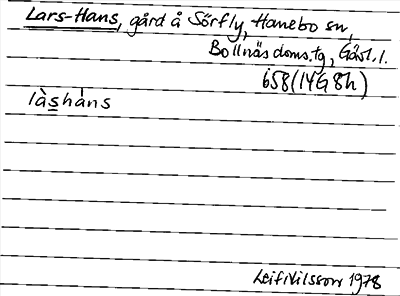 Lars-Hans, gård å Sörfly, Hanebo sn,
Bollnäs doms.tg, Gävl.l.
658(14G8h)
làshàns
Leif Nilsson 1978